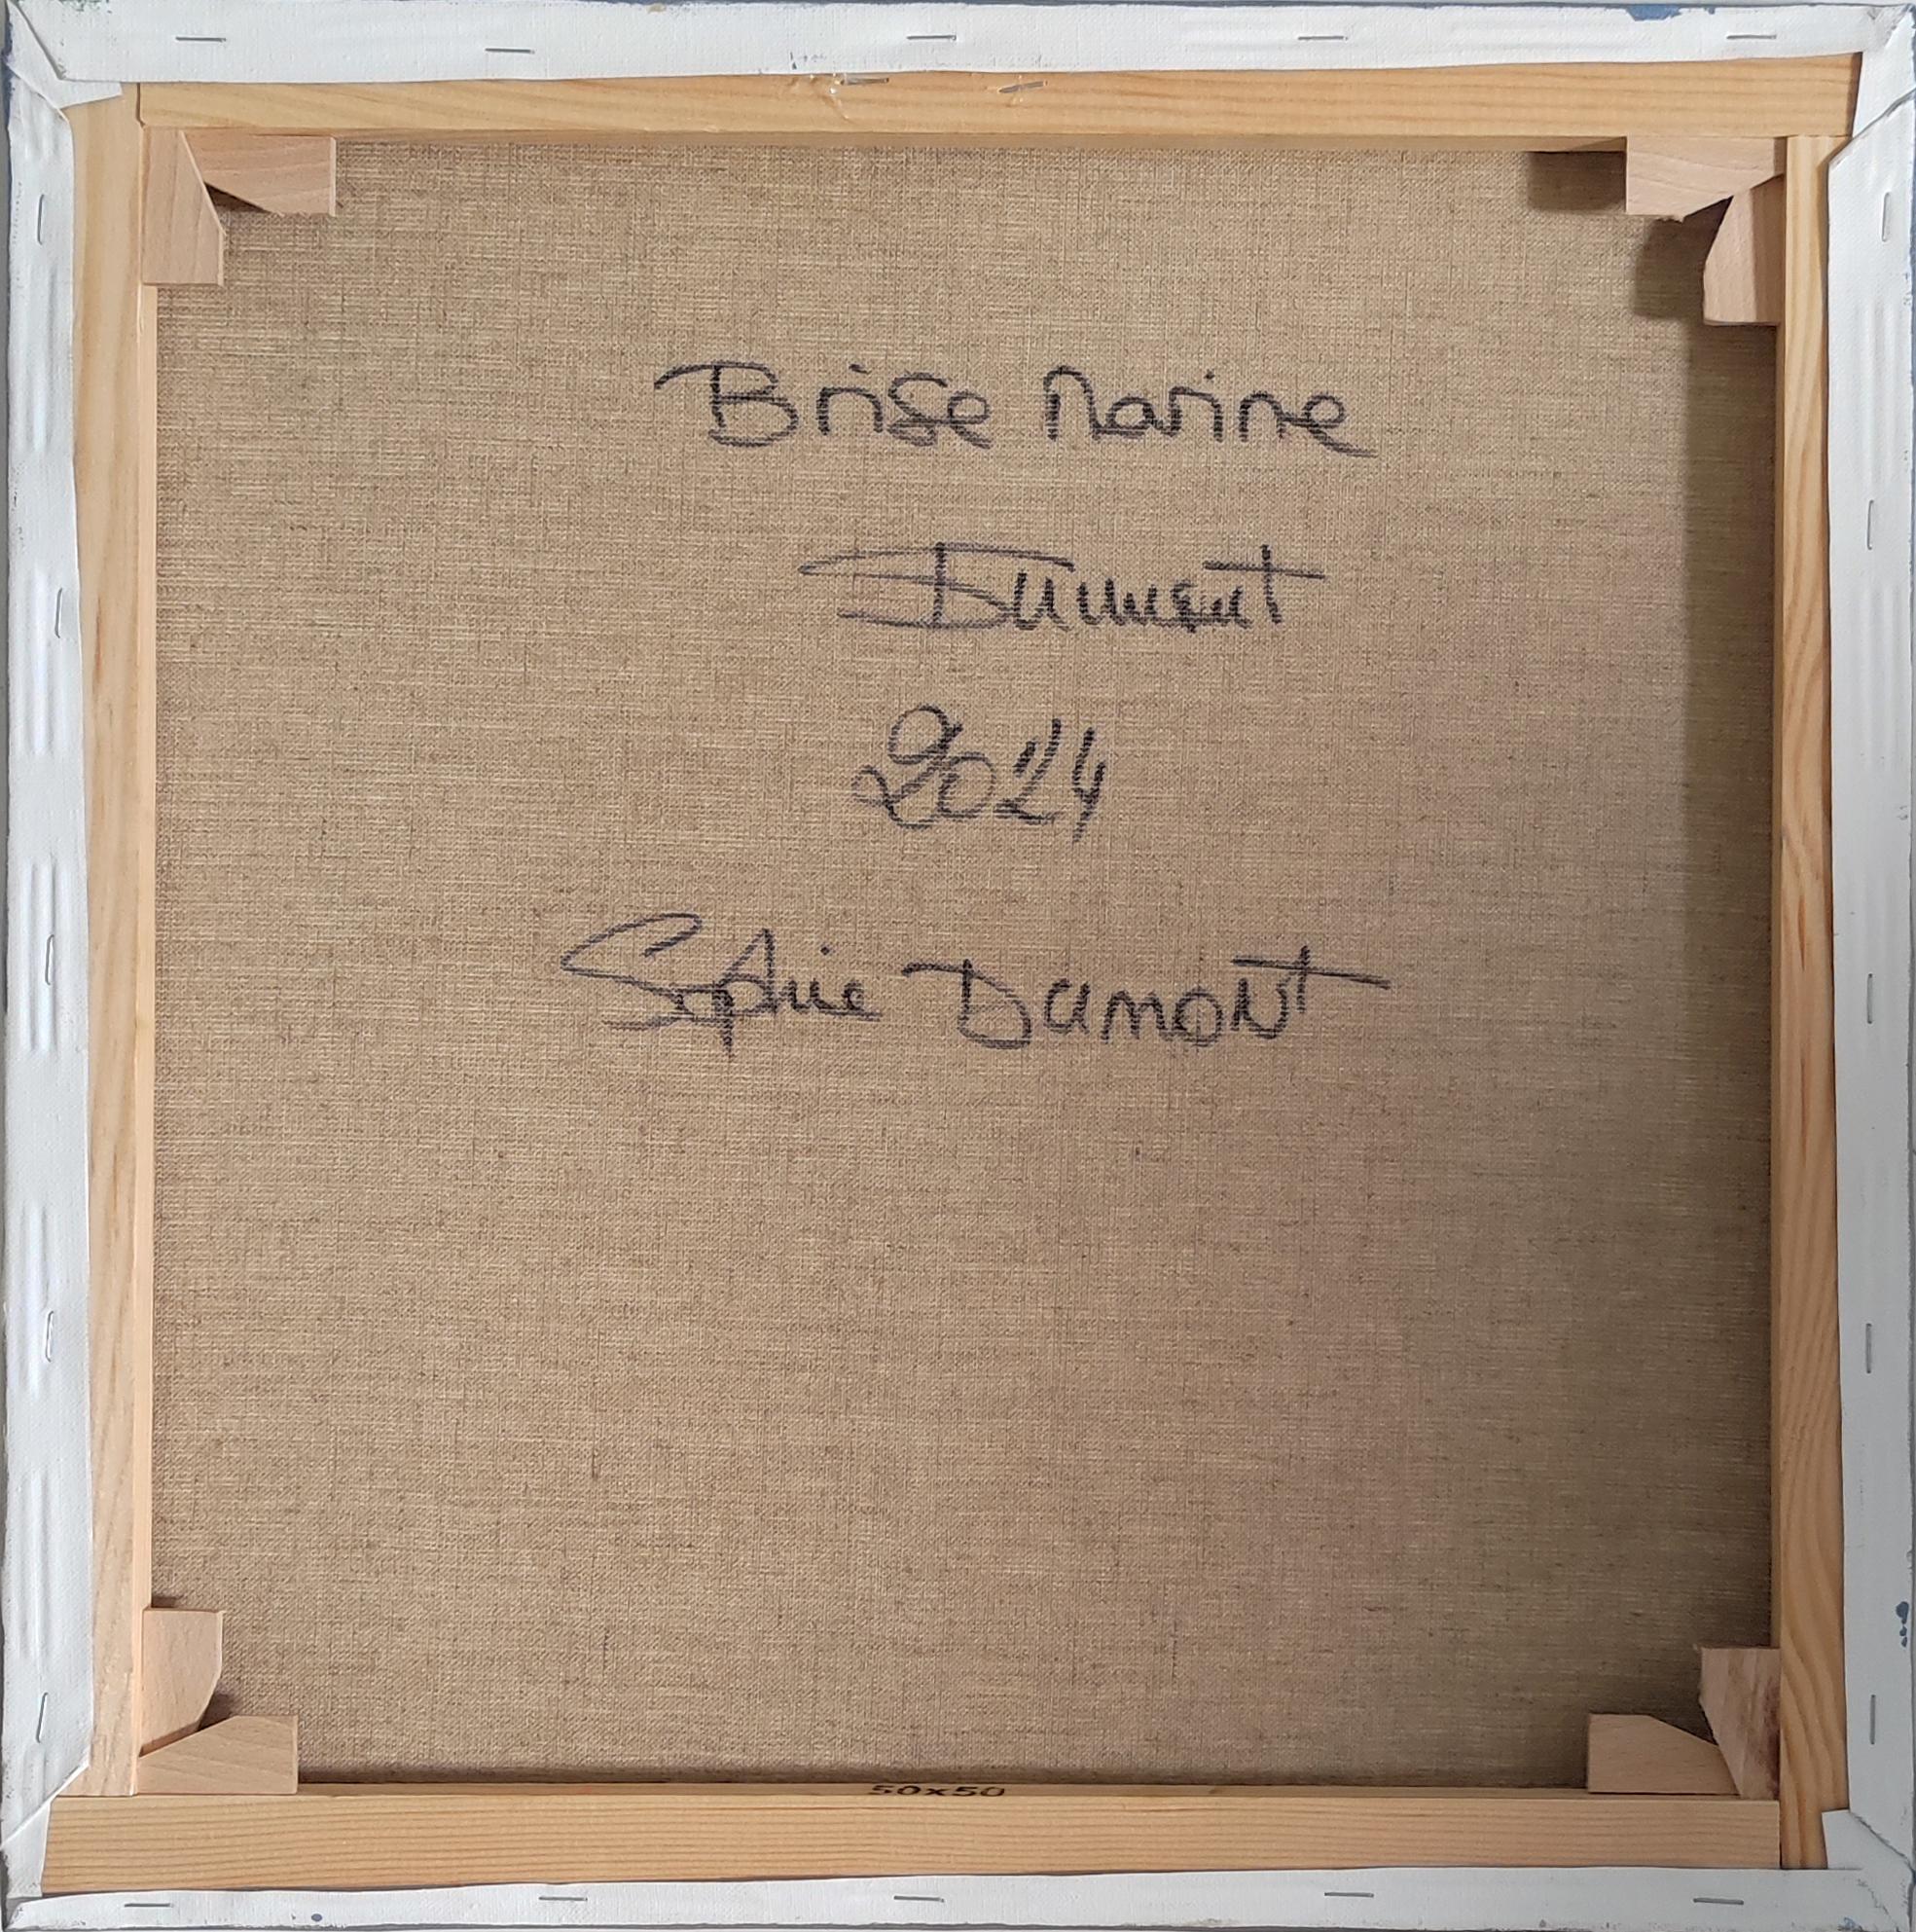 Brise Marine
SDumont
2024
Sophie Dumont
50x50